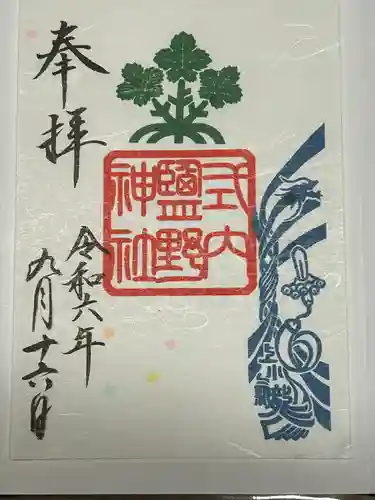 奉拝
式内
鹽野
神社
令和六年
九月十六日
上小